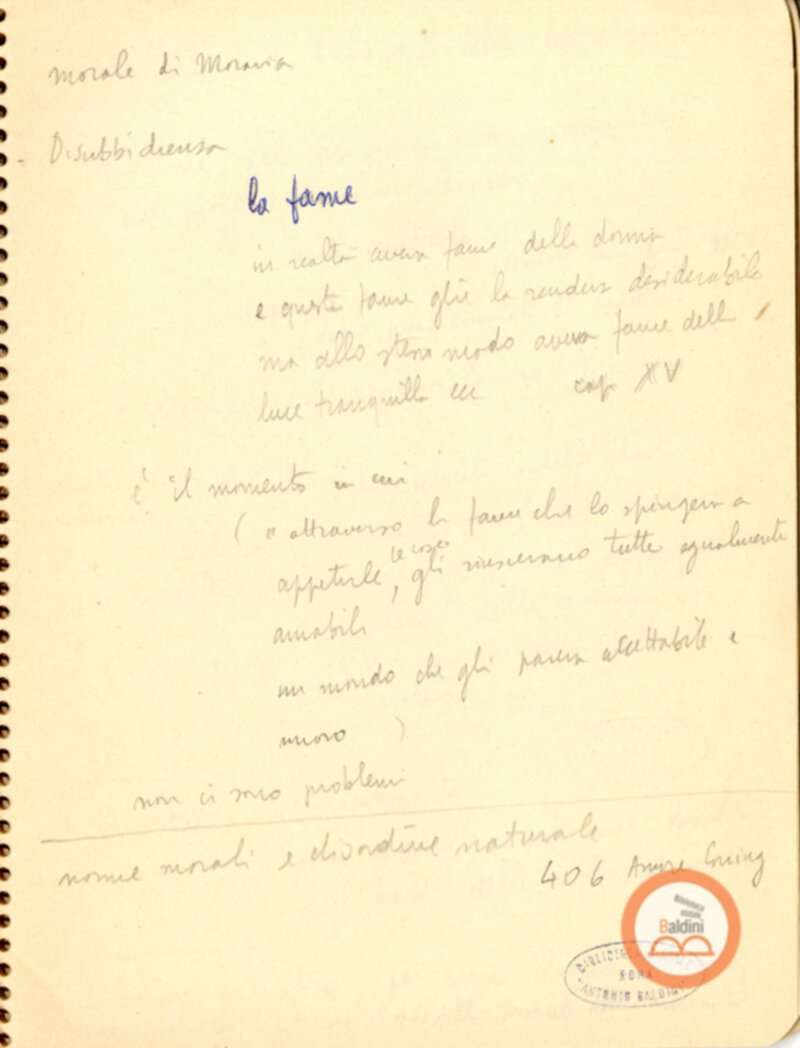 morale di Moravia
Disubbidienza
la fame
in realtà aveva fame della donna
e questa fame gliela rendeva desiderabile
ma allo stesso modo aveva fame della
luce tranquilla ecc cap XV
è il momento in cui
( " attraverso la fame che lo spingeva a
le cose
appetirle, gli riuscivano tutte egualmente
amabili
un mondo che gli pareva accettabile e
nuovo )
non ci sono problemi
norme morali e disordine naturale
406 Amore
Biblioteca
statale
Baldini
BIBLIOTECA
ROMA
"ANTONIO BALDINI"